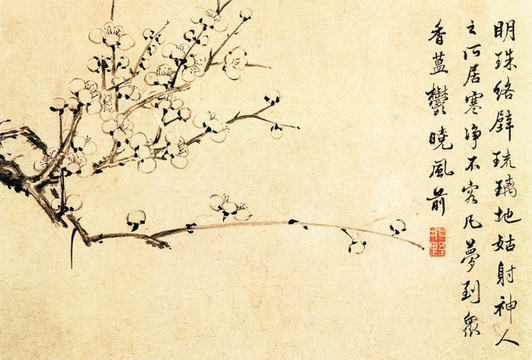 明珠络臂琉璃地姑射神人
之所居寒净不容凡梦到众
香蓝郁晓风前